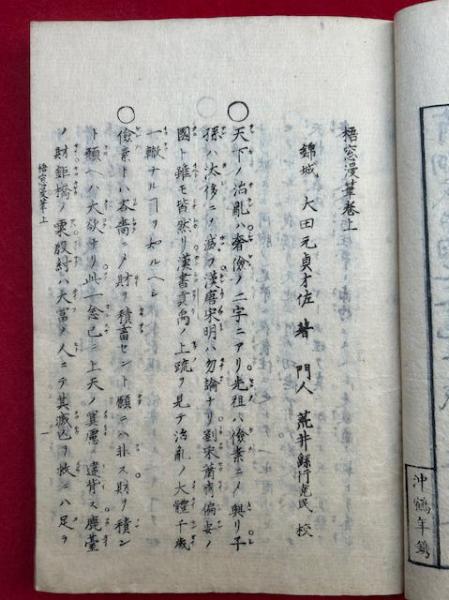 梧窓漫筆巻上
錦城 大田元貞才佐 著 門人 荒井 行 民 校
○天下ノ治亂ハ奢儉ノ二字ニアリ先祖ハ儉素ニメ興リ子
孫ハ汰侈ニメ滅フ漢唐宋明ハ勿論ナリ劉宋蕭南偏安ノ
國ト雖モ皆然リ漢書貢禹ノ上疏ヲ見テ治亂ノ大體千歳
一轍ナル丁ヲ知ルヘシ
○儉素トハ吝嗇ニメ財ヲ積畜セント願ニハ非ス財ヲ積ン
ト願ヘハ大欲ナリ此一念已ニ上天ノ冥慮ニ違背ス鹿臺
ノ財鉅橋ノ粟殷紂ハ大富ノ人ニテ其滅亡ヲ救ニハ足ラ
梧窓漫筆上
一
沖鶴年鐫